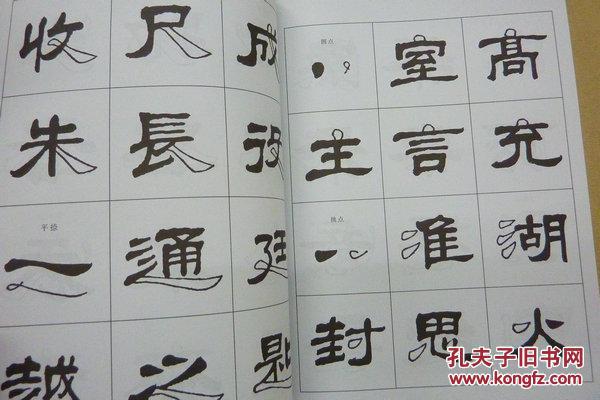 收 尺 成
朱 長 投
平捺 通 廷
越 之 匙
圆点 室 高
主 言 充
挑点 淮 湖
封 思 火
孔夫子旧书网
www.kongfz.com